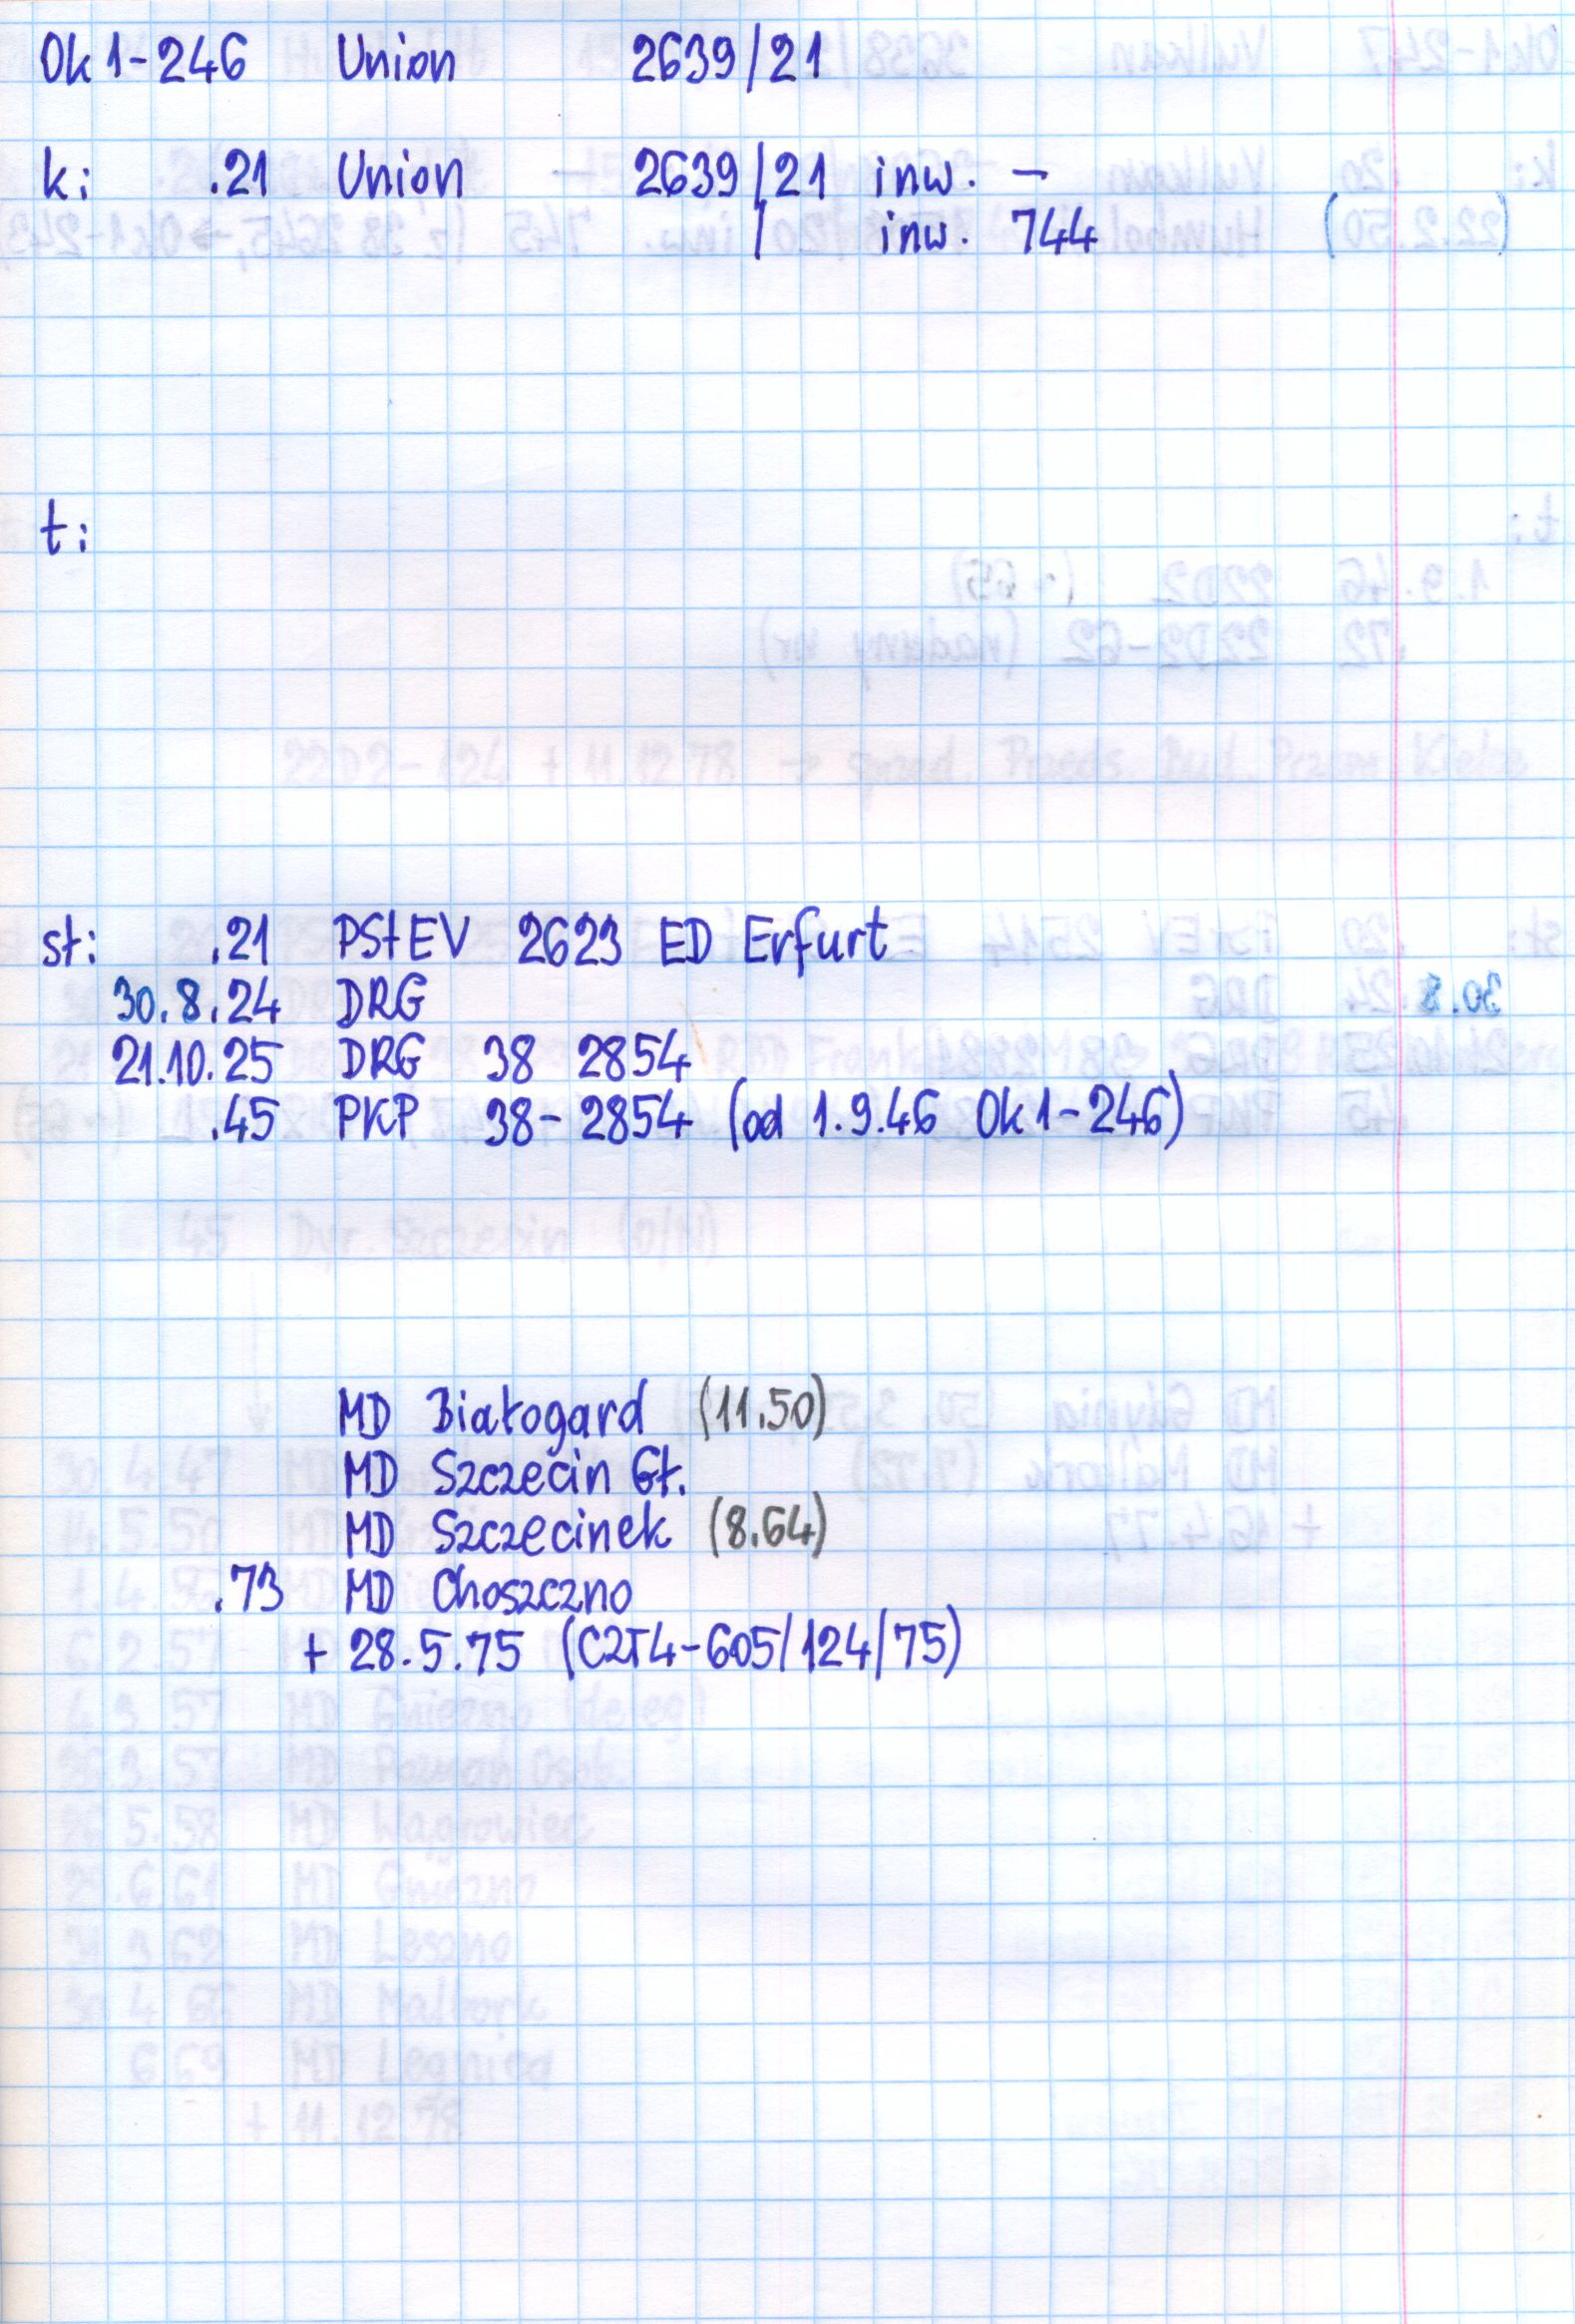 Ok1-246 Union 2639/21
k: .21 Union 2639/21 inw. -
/ inw. 744
t:
st: .21 PStEV 2623 ED Erfurt
30.8.24 DRG
21.10.25 DRG 38 2854
.45 PKP 38-2854 (od 1.9.46 Ok1-246)
MD Białogard (11.50)
MD Szczecin Gł.
MD Szczecinek (8.64)
.73 MD Choszczno
+ 28.5.75 (C2T4-605/124/75)